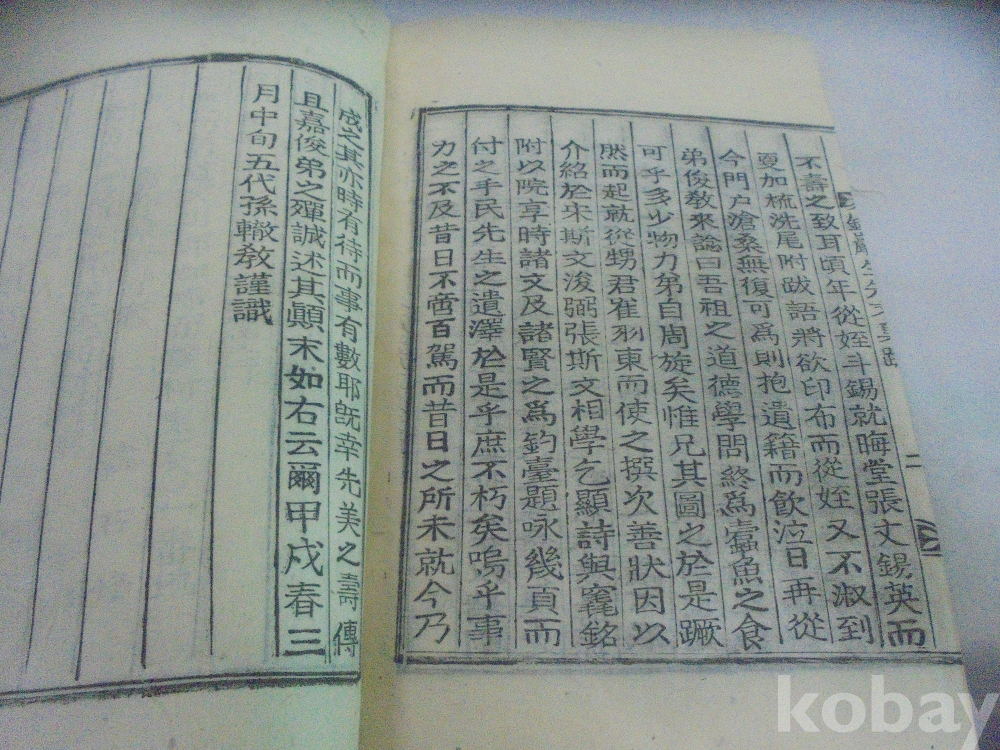 不壽之致耳頃年從姪斗錫就晦堂張丈錫英而
更加梳洗尾附跋語將欲印布而從姪又不淑到
今門戶滄桑無復可爲則抱遺籍而飮泣日再從
弟俊敎來論曰吾祖之道德學問終爲蠹魚之食
可乎多少物力弟自周旋矣惟兄其圖之於是蹶
然而起就從甥君崔東而使之撰次善狀因以
介紹於宋斯文浚弼張斯文相學乞顯詩與竁銘
附以院享時諸文及諸賢之爲釣臺題咏幾頁而
付之手民先生之遺澤於是乎庶不朽矣嗚乎事
力之不及昔日不啻百駕而昔日之所未就今乃
成之其亦時有待而事有數耶旣幸先美之壽傳
且嘉俊弟之殫誠述其顚末如右云爾甲戌春三
月中旬五代孫轍敎謹識
二
kobay